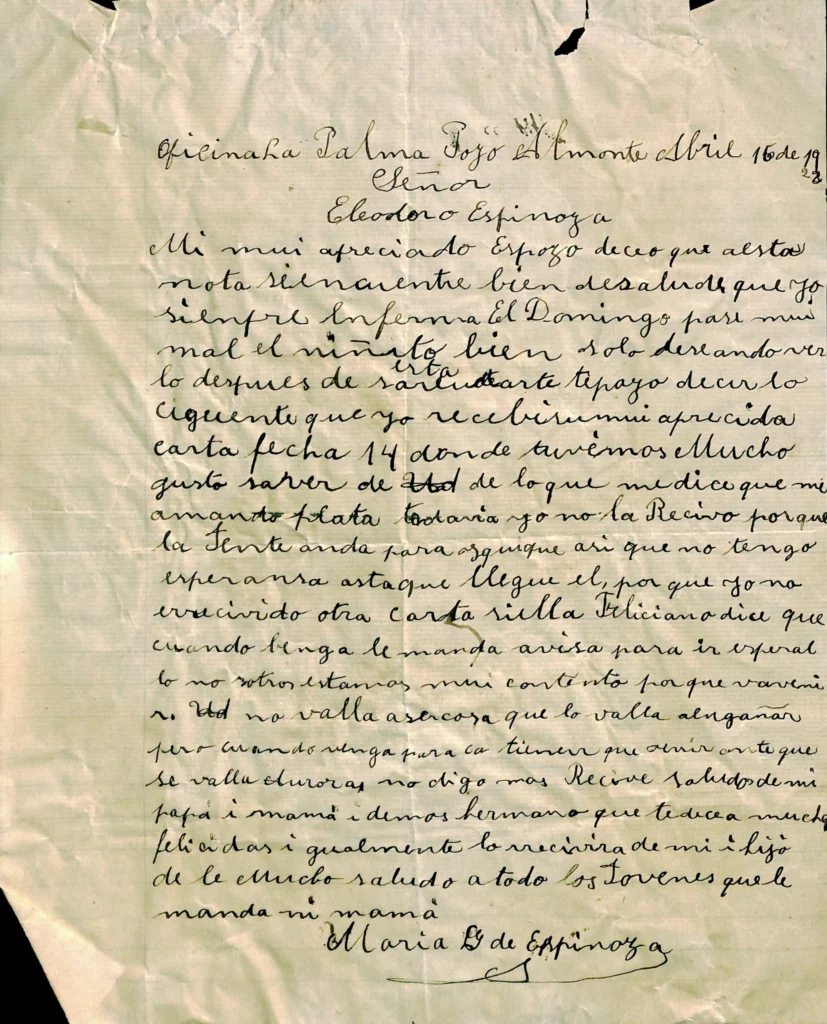 Oficina La Palma Pozo Almonte Abril 16 de 19
28
Señor
Eleodoro Espinoza
Mi mui apreciado Espozo deceo que aesta
nota siencuentre bien desalude que yo
sienpre Enferma El Domingo pase mui
mal el niñito bien solo deseando ver
lo despues de esta saludarte tepazo decir lo
ciguente que yo recebi su mui aprecida
carta fecha 14 donde tuvimos Mucho
gusto saver de Ud de loque medice que me
amando plata todavia yo no la Recivo porque
la Jente anda para asquique asi que no tengo
esperansa astaque llegue el, por que yo no
errecivido otra carta siella Feliciano dice que
cuando benga le manda avisa para ir esperal
lo no sotros estamos mui contento porque vaveni
r. Ud no valla asercosa que lo valla aengañar
pero cuando venga para ca tienen que venir ante que
se valla no digo mas Recive saludos de mi
papá i mamá i demos hermano que tedecea mucha
felicidas i gualmente lo rrecivira de mi i hijo
de le Mucho saludo a todo los Jovenes que le
manda mi mamá
Maria G de Espinoza